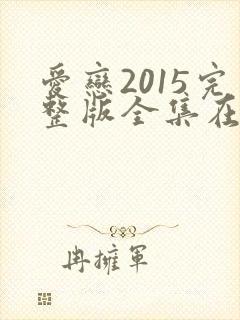 愛戀2015完
整版全集在
冉擁軍